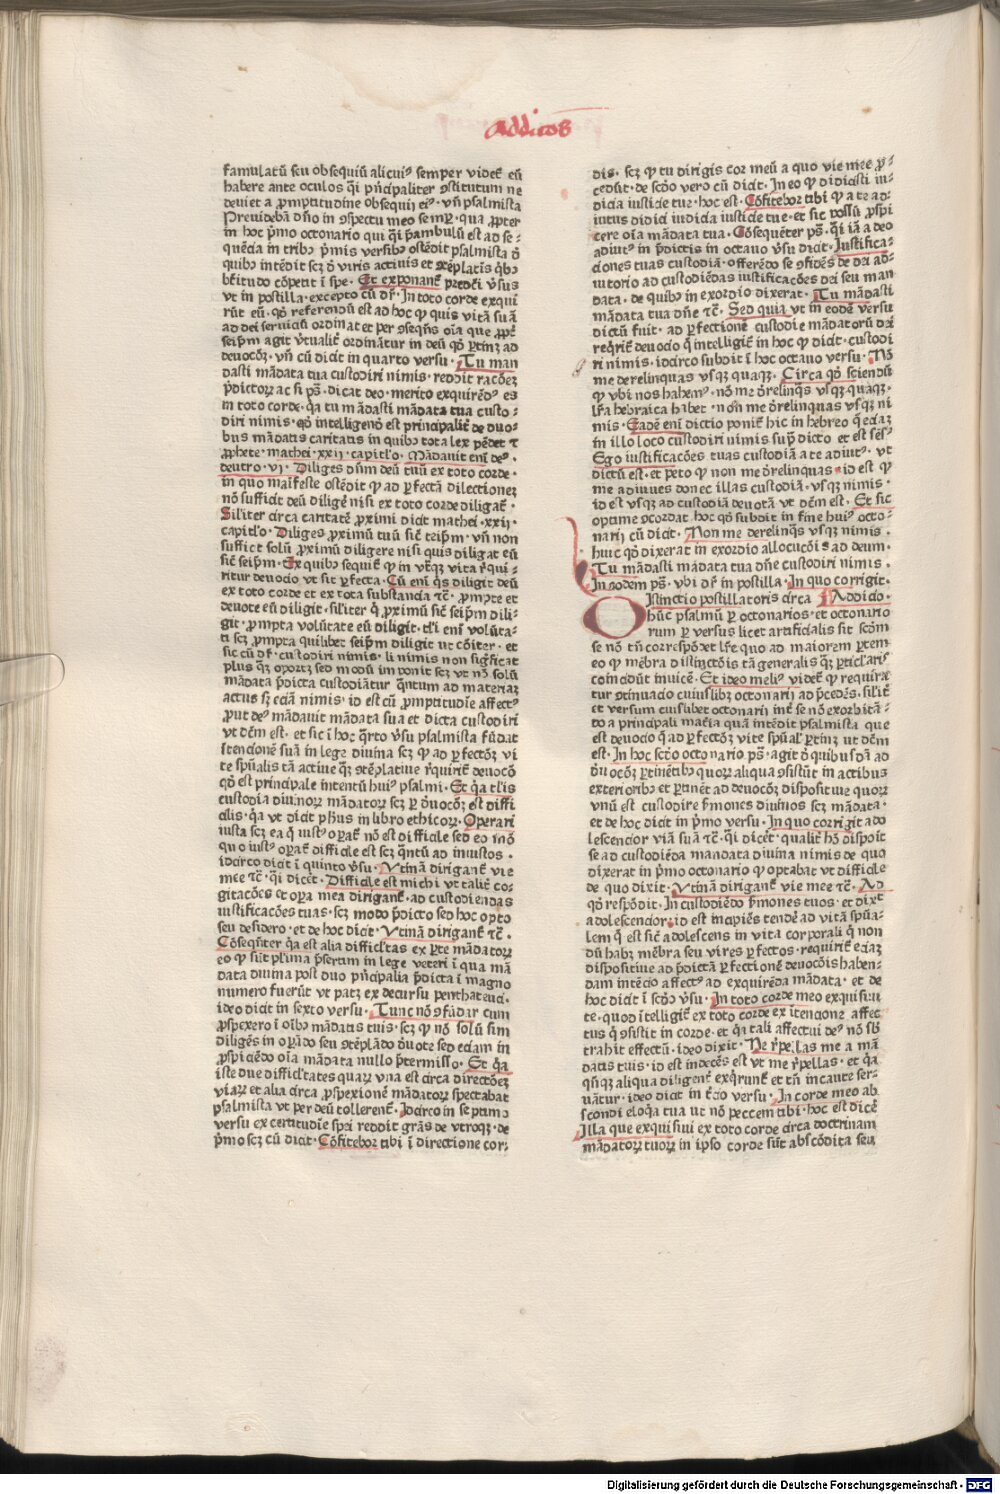 Additōes
famulatū seu obsequiū alicui⁹ semper videt᷑ eū
habere ante oculos q̄i pn̄cipaliter ꝯstitutum ne
deuiet a ꝓmptitudine obsequij ei⁹. vn̄ psalmista
Preuidebā dn̄o in ꝯspectu meo semp̱. qua ꝓpter
in hoc pͥmo octonario qui q̄i p̄ambulū est ad se-
quētia in tribꝰ pͥmis versibꝰ ostēdit psalmista ꝙ
quibꝰ intēdit scꝫ ꝙ viris actiuis et ꝯtēplatis q̄bꝰ
bt̄itudo cōpetit ī spe. Et exponant᷑ predc̄i v̄sus
vt in postilla. excepto cū dr̄. In toto corde exqui
rūt eū. qd̄ referendū est ad hoc ꝙ quis vitā suā
ad dei seruiciū ordinat et per ꝯseqn̄s oīa que ꝓpt̄
seip̄m agit v̄tualit᷑ ordinātur in deū qd̄ ꝑtinꝫ ad
deuocōꝫ. vn̄ cū dicit in quarto versu. Tu man
dasti mādata tua custodiri nimis. reddit racōeꝫ
p̄dictoꝝ ac si ps̄. dicat deo. merito exquirēdꝰ es
in toto corde. q̄a tu mādasti mādata tua custo-
diri nimis. qd̄ intelligenō est principalit᷑ de duo-
bus mādatis caritatis in quibꝰ tota lex pēdet ⁊
ꝓphete. mathei. xxij. capitl̓o. Mādauit eni de⁹.
deutro. vj. Diliges dn̄m deū tuū ex toto corde.
in quo maīfeste ostēdit ꝙ ad ꝑfectā dilectioneꝫ
nō sufficit deū diligē nisi ex toto corde diligat᷑.
Sil̓iter circa caritatē ꝓximi dicit mathei. xxij.
capitl̓o. Diliges ꝓximū tuū sic̄ teip̄m. vn̄ non
sufficit solū ꝓximū diligere nisi quis diligat eū
sic̄ seip̄m. Ex quibꝰ sequit᷑ ꝙ in vtͥqꝫ vita rͥqui-
ritur deuocio vt sic ꝑfecta. Cū eni q̄s diligit deū
ex toto corde et ex tota substancia ⁊c̄. ꝓmpte et
deuote eū diligit. sil̓iter q̄ ꝓximū sic̄ seip̄m dili-
git. ꝓmpta volūtate eū diligit. tl̓i eni volūta-
ti scꝫ ꝓmpta quilibet seip̄m diligit ut cōiter. et
sic cū dr̄. custodiri nimis. li nimis non sig̅ficat
plus q̄ꝫ oportꝫ sed modū imponit scꝫ vt nō solū
mādata p̄dicta custodiātur q̄ntum ad materiaꝫ
actus sꝫ eciā nimis. id est cū ꝓmptitudīe affect⁹
ꝓut de⁹ mādauit mādata sua et dicta custodiri
vt dēm est. et sic ī hoc q̄rto v̄su psalmista fūdat
ītencionē suā in lege diuina scꝫ ꝙ ad ꝑfectōꝫ vi
te spūalis tā actiue q̄ꝫ ꝯtēplatiue rͥquirit᷑ deuocō
qd̄ est principale intentū hui⁹ psalmi. Et q̄a tl̓is
custodia diuinoꝝ mādatoꝝ scꝫ per ꝺuocōꝫ est diffi
cilis. q̄a vt dicit phūs in libro ethicoꝝ. Operari
iusta scꝫ ea q̄ iust⁹ oꝑat᷑ nō est difficile sed eo mō
quo iust⁹ oꝑat᷑ difficile est scꝫ q̄ntū ad iniustos.
idcirco dicit ī quinto v̄su. Vtinā dirigant᷑ vie
mee ⁊c̄. q̄i dicēt. Difficile est michi vt talit᷑ co-
gitacōes et oꝑa mea dirigant᷑. ad custodiendas
iustificacōes tuas. scꝫ modo p̄dicto sed hoc opto
seu desidero. et de hoc dicit. Vtinā dirigant᷑ ⁊c̄.
Cōseqn̄ter q̄a est alia difficl̓tas ex ꝑte mādatoꝝ
eo ꝙ sūt pl̓ima p̄sertim in lege veteri ī qua mā
data diuina post duo pn̄cipalia p̄dicta ī magno
numero fuerūt vt patꝫ ex decursu penthateuci.
ideo dicit in sexto versu. Tunc nō ꝯfūdar cum
ꝓspexero ī oībꝰ mādatis tuis. scꝫ ꝙ nō solū sim
diligēs in oꝑādo seu ꝯtēplādo ꝺuote sed eciam in
ꝓspiciēdo oīa mādata nullo p̄termisso. Et q̄a
iste due difficl̓tates quaꝝ vna est circa directōeꝫ
viaꝝ et alia circa ꝓspexionē mādatoꝝ spectabat
psalmista vt per deū tollerent᷑. Idcirco in septimo
versu ex certitudīe spei reddit grās de vtroqꝫ. de
pͥmo scꝫ cū dicit. Cōfitebor tibi ī directione cor-
dis. scꝫ ꝙ tu dirigis cor meū a quo vie mee ꝓ-
cedūt. de scd̄o vero cū dicit. In eo ꝙ didicisti iu-
dicia iusticie tue. hoc est. Cōfitebor tibi ꝙ a te ad-
iutus didici iudicia iusticie tue. et sic possū ꝓspi
cere oīa mādata tua. Cōsequēter ps̄. q̄i iā a deo
adiut⁹ in p̄dictis in octauo v̄su dicit. Iustifica-
ciones tuas custodiā. offerēdo se ꝯfidēs de dei ad-
iutorio ad custodiēdas iustificacōes dei seu man
data. de quibꝰ in exordio dixerat. Tu mādasti
mādata tua dn̄e ⁊c̄. Sed quia vt in eodē versu
dictū fuit. ad ꝑfectionē custodie mādatorū dei
reqͥrit᷑ deuocio q̄ intelligit᷑ in hoc ꝙ dicit. custodi
ri nimis. idcirco subdit ī hoc octauo versu. Nō
me derelinquas vsqꝫ quaqꝫ. Circa qd̄ sciendū
ꝙ vbi nos habem⁹. nō me ꝺrelinq̄s vsqꝫ quaqꝫ.
lr̄a hebraica habet. nōn me ꝺrelinquas vsqꝫ ni
mis. Eadē eni dictio ponit᷑ hic in hebreo q̄ eciaꝫ
in illo loco custodiri nimis sup̄ dicto et est sēs⁹
Ego iustificacōes tuas custodiā a te adiut⁹. vt
dictū est. et peto ꝙ non me ꝺrelinquas. id est ꝙ
me adiuues donec illas custodiā. vsqꝫ nimis.
id est vsqꝫ ad custodiā deuotā vt dēm est. Et sic
optime ꝯcordat hoc qd̄ subdit in fine hui⁹ octo-
narij cū dicit. Non me derelinq̄s vsqꝫ nimis.
huic qd̄ dixerat in exordio allocucōis ad deum.
Tu mādasti mādata tua dn̄e custodiri nimis.
In eodem ps̄. vbi dr̄ in postilla. In quo corrigit.
DIstinctio postillatoris circa ¶ Addicio.
hūc psalmū ꝑ octonarios. et octonario
rum ꝑ versus licet artificialis sit scd̄m
se nō tn̄ correspōdet lr̄e quo ad maiorem ꝑtem
eo ꝙ mēbra distinctōis tā generalis q̄ꝫ ꝑticl̓aris
coincidūt inuicē. Et ideo meli⁹ videt᷑ ꝙ requirat᷑
tur ꝯtinuacio cuiuslibꝫ octonarij ad p̄cedēs. sil̓it᷑
et versum cuiuslibet octonarij int᷑ se nō exorbitā-
do a principali mat̄ia quā intēdit psalmista que
est deuocio q̄ ad ꝑfectōꝫ vite spūal̓ ꝑtinꝫ ut dēm
est. In hoc scd̄o octonario ps̄. agit ꝺ quibusdā ad
ꝺuocōꝫ ꝑtinētibꝰ quoꝝ aliqua ꝯsistūt in actibus
exterioribꝰ et ꝑtinēt ad deuocōꝫ dispositiue quoꝝ
vnū est custodire s̄mones diuinos scꝫ mādata.
et de hoc dicit in pͥmo versu. In quo corrigit ado
lescencior viā suā ⁊c̄. q̄i dicēt. qualit᷑ hō dispoīt
se ad custodiēda mandata diuina nimis de quo
dixerat in pͥmo octonario ꝙ optabat vt difficile
de quo dixit. Vtinā dirigant᷑ vie mee ⁊c̄. Ad
qd̄ respōdit. In custodiēdo s̄mones tuos. et dixͭ
adolescencior. id est incipiēs tendē ad vitā spūa-
lem q̄ est sic̄ adolescens in vita corporali q̄ non
dū habꝫ mēbra seu vires ꝑfectos. requirit᷑ eciaꝫ
dispositiue ad p̄dictā ꝑfectionē deuocōis haben-
dam intēcio affect⁹ ad exquirēda mādata. et de
hoc dicit ī scd̄o v̄su. In toto corde meo exquisiui
te. quod ītelligit᷑ ex toto corde ex ītencione affec
tus q̄ ꝯsistit in corde. et q̄a tali affectui de⁹ nō sb̄
trahit effectū. ideo dixit. Ne rͥpellas me a mā
datis tuis. id est indecēs est vt me rͥpellas. et q̄a
qn̄qꝫ aliqua diligent᷑ exq̄runt᷑ et tn̄ incaute ser-
uātur. ideo dicit in t̄cio versu. In corde meo ab
scondi eloq̄a tua ut nō peccem tibi. hoc est dicē
Illa que exquisiui ex toto corde circa doctrinam
mādatoꝝ tuoꝝ in ipso corde sūt abscōdita seu
Digitalisierung gefördert durch die Deutsche Forschungsgemeinschaft - DFG